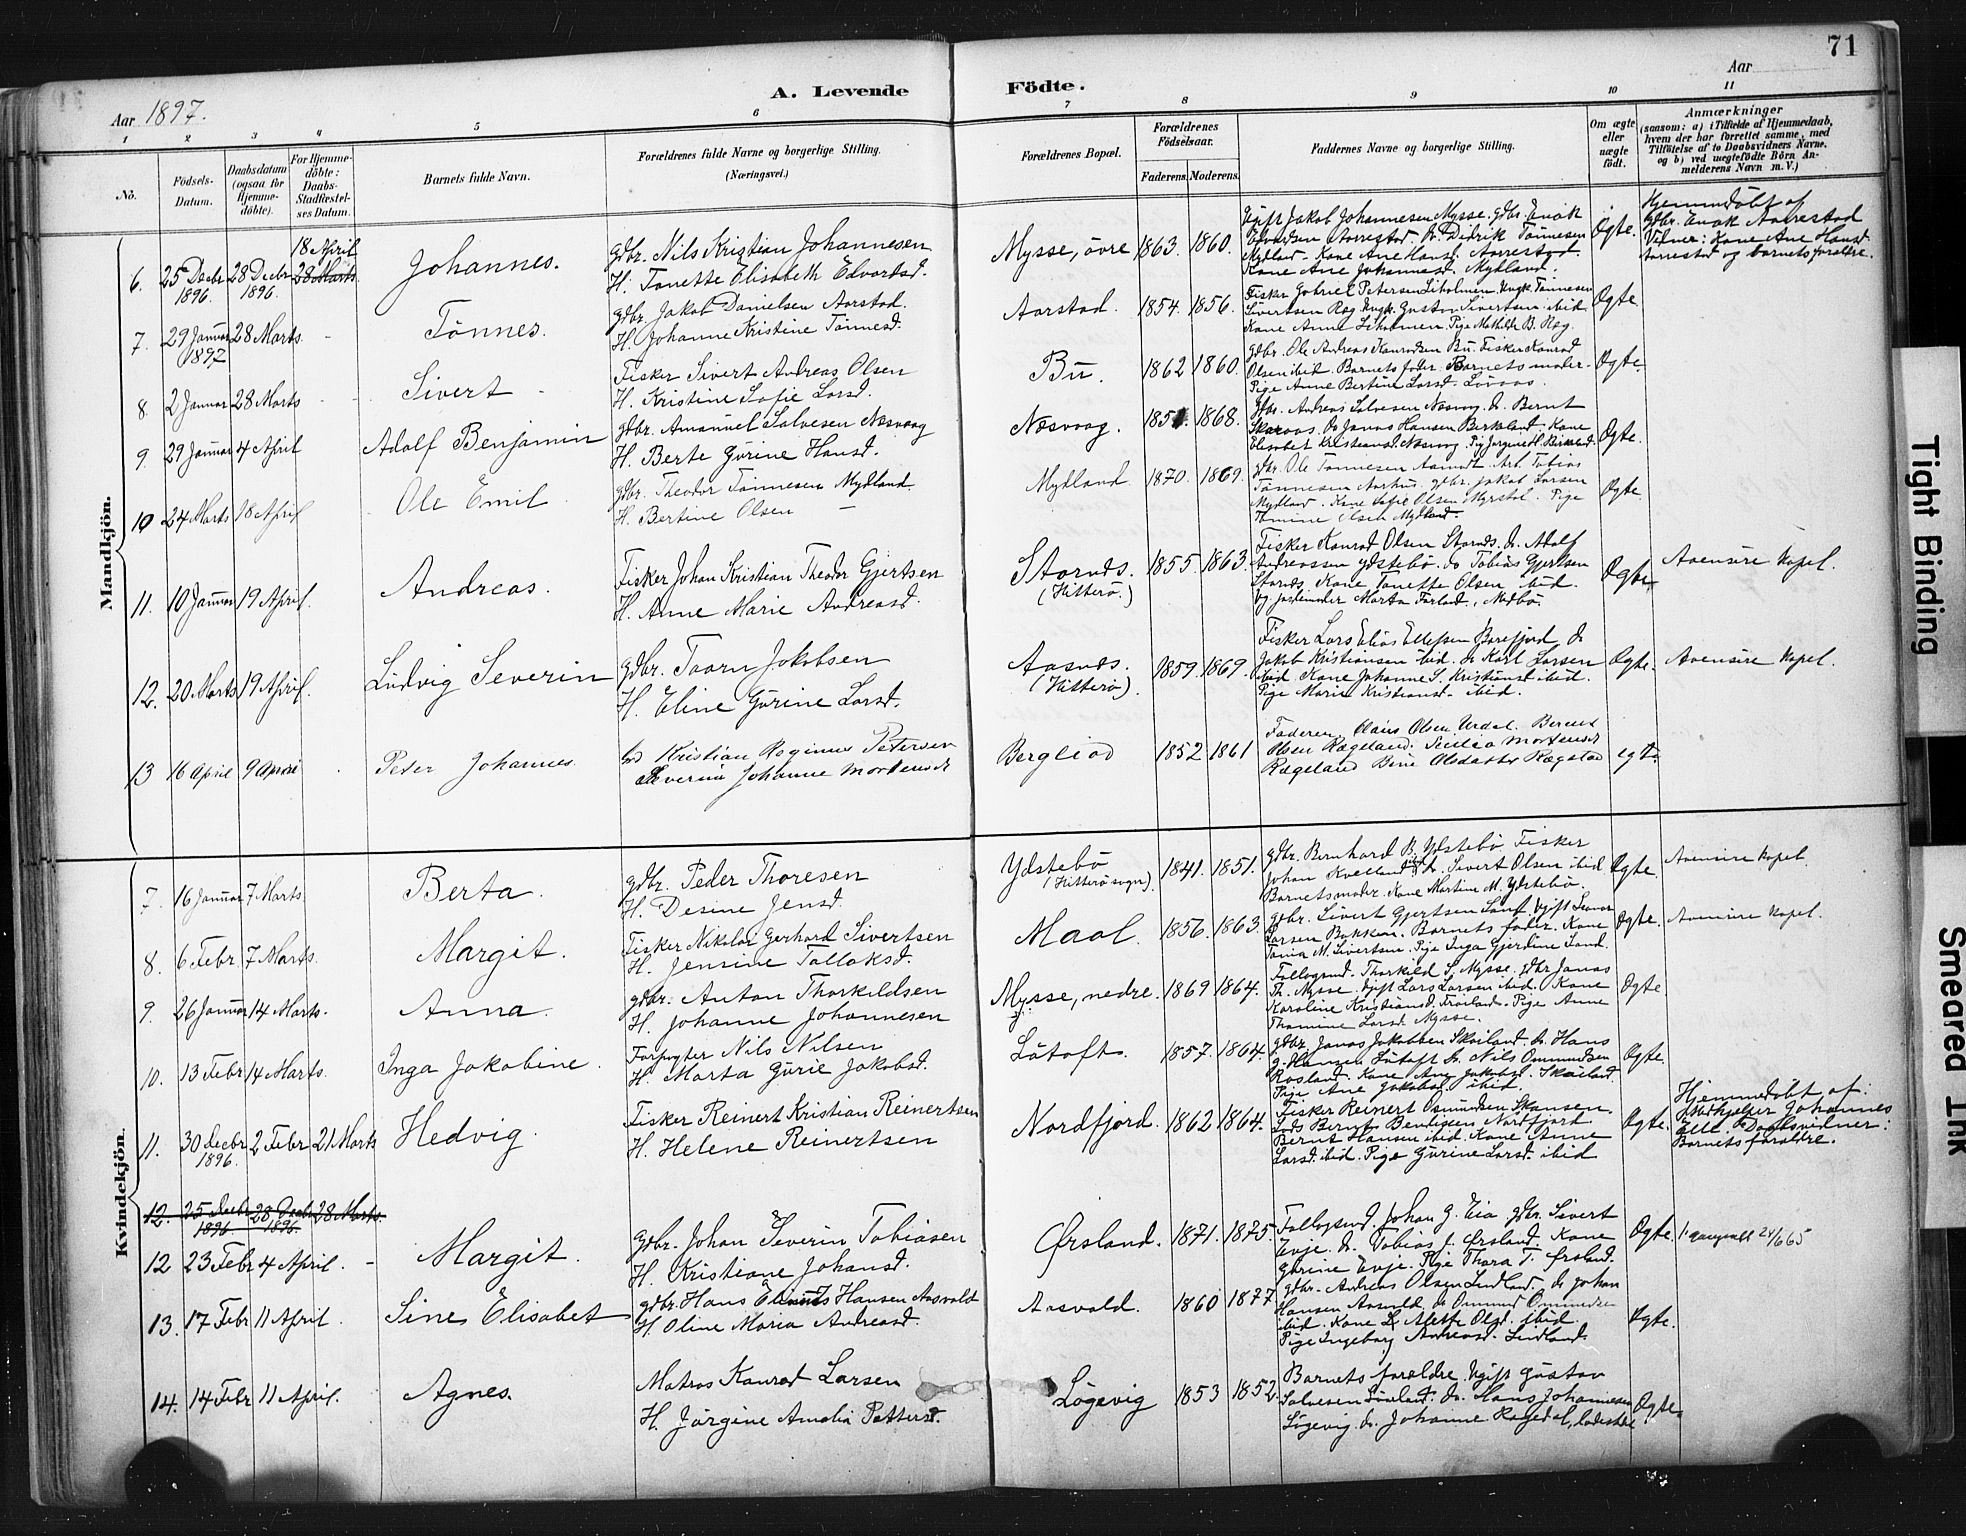 71
Aar 1897.
A. Levende Födte.
Aar
1 2 3 4 5 6 7 8 9 10 11
No.
Födsels-Datum.
Daabsdatum (ogsaa for Hjemmedöbte).
For Hjemmedöbte: Daabs-Stadfæstelses Datum.
Barnets fulde Navn.
Forældrenes fulde Navne og borgerlige Stilling. (Næringsvei.)
Forældrenes Bopæl.
Forældrenes Födselsaar.
Faderens. Moderens.
Faddernes Navne og borgerlige Stilling.
Om ægte eller uægte födt.
Anmærkninger
(saasom: a) i Tilfælde af Hjemmedaab, hvem der har forrettet samme, med Tilföielse af to Daabsvidners Navne, og b) ved uægtefödte Börn Anmelderens Navn m. V.)
Mandkjön.
6. 25 Decbr 1896. 28 Decbr 1896. 18 April 28 Marts Johannes.
Gdbr. Nils Kristian Johannesen
H. Tonette Elisabeth Edvartsd.
Mysse, övre 1863. 1860.
Ugift Jakob Johannesen Mysse. Gdbr. Enok
Edvardsen Aarrestad. Do Didrik Tönnesen
Mydland. Kone Ane Hansd. Aarrestad.
Kone Ane Johannesd. Mydland.
Ægte.
Hjemmedöbt af
Gdbr. Enok Aarrestad
Vidner: Kone Ane Hansd.
Aarrestad og barnets forældre.
7. 29 Januar 1897 28 Marts - Tönnes.
Gdbr. Jakob Danielsen Aarstad.
H. Johanne Kristine Tönnesd.
Aarstad. 1854. 1856.
Fisker Gabriel Petersen Liholmen. Ungk. Tönnes
SivertsenRæg. Ungk. Gustav Sivertsen ibid.
Kone Anne Liholmen. Pige Mathilde B. Ræg.
Ægte
8. 2 Januar 28 Marts - Sivert
Fisker Sivert Andreas Olsen
H. Kristine Sofie Larsd.
Bu. 1862 1860.
Gdbr. Ole Andreas Konradsen Bu. Fisker Konrad
Olsen ibid. Barnets fader. Barnets moder.
Pige Anne Bertine Larsd. Lövaas.
Ægte
9. 29 Januar 4 April Adolf Benjamin
Gdbr. Amanuel Salvesen Næsvaag
H. Berte Gurine Hansd.
Næsvaag. 1868.
Gdbr. Andreas Salvesen Næsvaag. Do Bernt
Skaraas. Do Jonas Hansen Birkeland. Kone
Elisabet Kristiansd. Næsvaag.
Ægte.
10 24 Marts 18 April Ole Emil
Gdbr. Theodor Tönnesen Mydland
H. Bertine Olsen -
Mydland 1870. 1869.
Gdbr. Ole Tönnesen Aamodt. Arb. Tobias
Tönnesen Aarhus. Gdbr. Jakob Larsen
Mydland. Kone Sofie Olsen Myrstöl. Pige
Tomine Olsen Mydland.
Ægte
11. 10 Januar 19 April. Andreas.
Fisker Johan Kristian Theodor Gjertsen
H. Anne Marie Andreasd.
Stornæs. (Hitterö.) 1855. 1863.
Fisker Konrad Olsen Stornæs. Do. Adolf
Andreassen Ydstebö. Do Tobias Gjertsen
Stornæs. Kone Tonette Olsen ibid.
Jordemoder Marta Farland, Medbö.
Ægte.
Aavensire Kapel.
12. 20 Marts 19 April. Ludvig Severin
Gdbr. Taarn Jakobsen
H. Eline Gurine Larsd.
Aasnæs. (Hitterö). 1859. 1869.
Fisker Lars Elias Ellefsen Borefjord. Do
Jakob Kristiansen ibid. Do Karl Larsen
ibid. Kone Johanne S. Kristiansd. ibid.
Pige Marie Kristiansd. ibid.
Ægte.
Aavensire Kapel.
13 16 April 9 April Peter Johannes
Kristian Reginus Petersen
Severine Johanne Mortensd.
Bergliod 1852 1861
Faderen, Claus Olsen Urdal. Bernt
Olsen Rægeland. Mortensd
Rægeland Olsdatter Rægstad
egte.
Kvindekjön.
7. 16 Januar 7 Marts. Berta.
Gdbr. Peder Thoresen
H. Desine Jensd.
Ydstebö (Hitterö sogn). 1841. 1851.
Gdbr. Bernhard B. Ydstebö. Fisker
Johan Kvelland ibid. Do. Sivert Olsen ibid
Barnets moder. Kone Martine M. Ydstebö.
Ægte.
Aavensire Kapel.
8. 6 Febr. 7 Marts. Margit.
Fisker Nikolai Gerhard Sivertsen
H. Jensine Tollaksd.
Maal. 1856. 1863.
Gdbr. Sivert Gjertsen Sand. Ugift Gunnar
Larsen Bakken. Barnets fader. Kone
Tonia M. Sivertsen. Pige Inga Gjerdine Sand.
Ægte.
Aavensire Kapel.
9. 26 Januar 14 Marts. Anna.
Gdbr. Anton Thorkildsen
H. Johanne Johannesen
Mysse, nedre. 1869 1864.
Follogsmd. Thorkild S. Mysse. Gdbr. Jonas
Th. Mysse. Ugift Lars Larsen ibid. Kone
Karoline Kristiansd. Fröiland. Pige Anne
Thomine Larsd. Mysse.
Ægte
10. 13 Febr. 14 Marts. Inga Jakobine.
Forpagter Nils Nilsen
H. Marta Gurie Jakobsd.
Låtoft. 1857. 1864.
Gdbr. Jonas Jakobsen Skailand. Do. Hans
G. Hansen Låtoft. Do. Nils Osmundsen
Rosland. Kone Ane Jakobsd. Skailand.
Pige Ane Jakobsd. ibid.
Ægte.
11. 30 Decbr 1896. 2 Febr. 21 Marts Hedvig.
Fisker Reinert Kristian Reinertsen
H. Helene Reinertsen
Nordfjord. 1862 1864.
Fisker Reinert Osmundsen Skansen.
Bernt Bendigsen Nordfjord
Bernt Hansen ibid. Kone Anne
Larsd. ibid. Pige Gurine Larsd. ibid
Ægte.
Hjemmedöbt af:
Medhjelper Johannes
Daabsvidner:
Barnets forældre.
12. 25 Decbr 1896 28 Decbr 1896. 28 Marts.
12 23 Febr. 4 April. - Margit.
Gdbr. Johan Severin Tobiasen
H. Kristiane Johansd.
Ørsland. 1871. 1875.
Follogsmd. Johan G. Eia. Gdbr. Sivert
Evje. Do. Tobias J. Ørsland. Kone
Gurine Evje. Pige Thora T. Ørsland.
Ægte.
24/6 65
13. 17 Febr 11 April. Sine Elisabet
Gdbr. Hans Hansen Aasvald
H. Oline Maria Andreasd.
Aasvald. 1860 1877
Gdbr. Andreas Olsen Lindland. Do Johan
Hansen Aasvald. Do Ommund Ommundsen
ibid. Kone Alette Olsd. ibid.
Pige Ingeborg Andreasd. Lindland.
Ægte.
14. 14 Febr 11 April. Agnes.
Matros Konrad Larsen
H. Jörgine Amalia Pettersd.
Lögevig 1853 1852.
Barnets forældre. Ugift Gustav
Salvesen Sirland. Do. Hans Johannesen
Lögevig. Do. Johanne Rægedal, ladested
Ægte.
Tight Binding
Smeared Ink